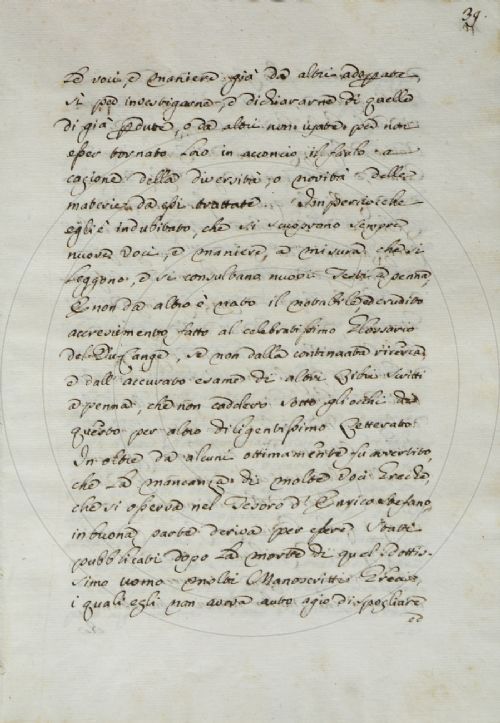 39.
le voci, e maniere già da altri adoprate,
sì per investigarne, e dichiararne di quelle
di già perdute, o da altri non usate per non
esser tornato loro in acconcio il farlo a
cagione della diversità, o novità delle
materie da essi trattate. Imperciocchè
egli è indubitato, che si scuoprono sempre
nuove voci, e maniere, a misura che si
leggono, e si consultano nuovi Testi a penna,
E non da altro è nato il notabile, ed erudito
accrescimento fatto al celebratissimo Glossario
del Du-Cange, se non dalla continuata ricerca,
e dall' accurato esame di altri Libri scritti
a penna, che non caddero sotto gli occhi di
questo per altro diligentissimo Letterato.
In oltre da alcuni ottimamente fu avvertito,
che la mancanza di molte voci Greche,
che si osserva nel Tesoro d' Enrico Stefano,
in buona parte deriva per essere stati
pubblicati dopo la morte di quel dottis-
simo uomo molti Manoscritti Greci,
i quali egli non aveva avuto agio di spogliare
ed